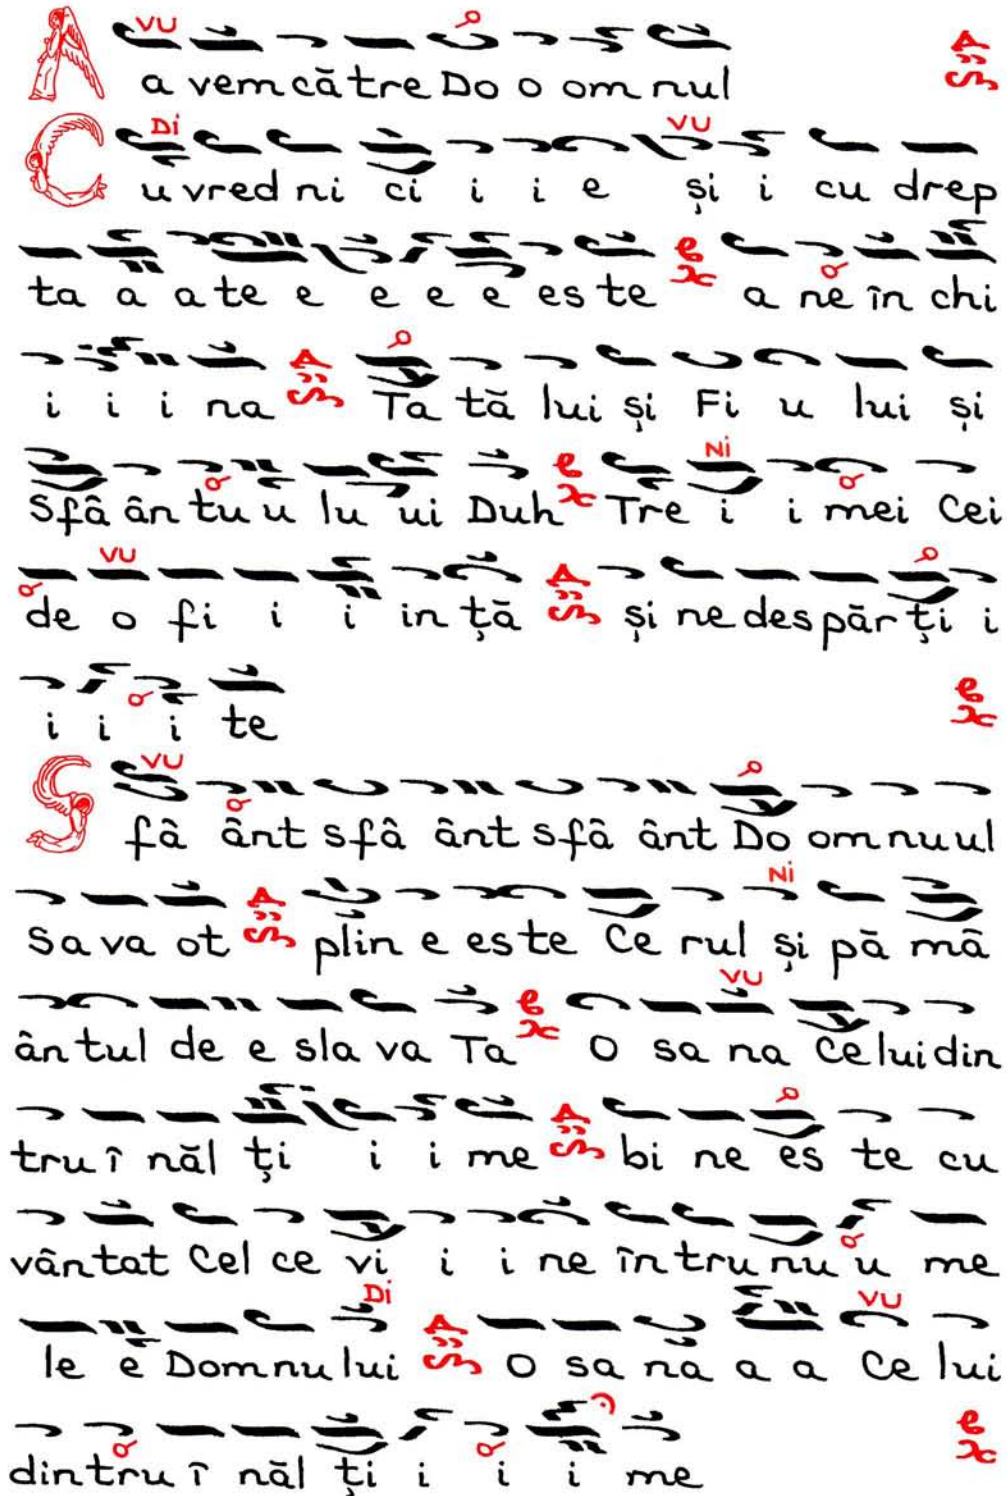 VU
A a vem că tre Do o om nul
Di VU
C u vred ni ci i i e și i cu drep
ta a a te e e e e es te a ne în chi
i i i na Ta tă lui și Fi u lui și
Ni
Sfâ ân tu u lu ui Duh Tre i i mei Cei
VU
de o fi i i in ță și ne des păr ți i
i i i te
VU
S fâ ânt sfâ ânt sfâ ânt Do om nu ul
Ni
Sa va ot plin e es te Ce rul și pă mâ
VU
ân tul de e sla va Ta O sa na Ce lui din
tru î năl ți i i me bi ne es te cu
vân tat Cel ce vi i i ne în tru nu u me
Di VU
le e Dom nu lui O sa na a a Ce lui
din tru î năl ți i i i me